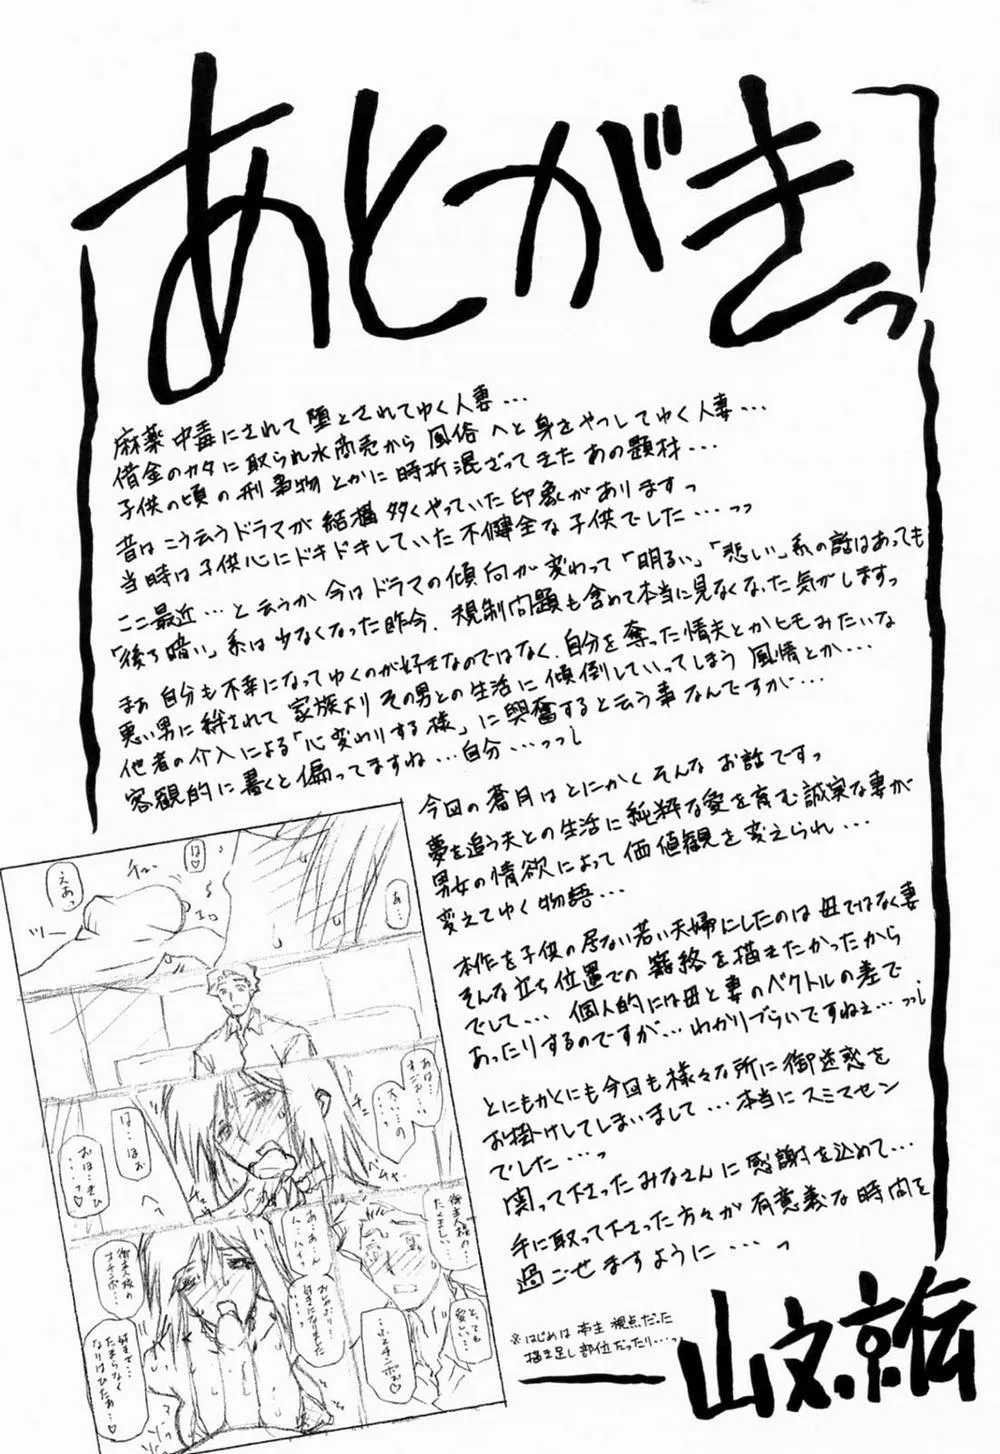 あとがきっ
麻薬中毒にされて堕とされてゆく人妻...
借金のカタに取られ水商売から風俗へと身をやつしてゆく人妻...
子供の頃の刑事物とかに時折混ざってきたあの題材...
昔はこう云うドラマが結構多くやっていた印象がありますっ
当時は子供心にドキドキしていた不健全な子供でした...っっ
ここ最近...と云うか今はドラマの傾向が変わって「明るい」「悲しい」系の話はあっても
「後ろ暗い」系は少なくなった昨今、規制問題も含めて本当に見なくなった気がしますっ
まぁ自分も不幸になってゆくのが好きなのではなく、自分を奪った情夫とかヒモみたいな
悪い男に絆されて家族よりその男との生活に傾倒していってしまう風情とか...
他者の介入による「心変わりする様」に興奮すると云う事なんですが...
客観的に書くと偏ってますね...自分...っっし
今回の蒼月はとにかくそんなお話ですっ
夢を追う夫との生活に純粋な愛を育む誠実な妻が
男女の情欲によって価値観を変えられ...
変えてゆく物語...
本作を子供の居ない若い夫婦にしたのは母ではなく妻
そんな立ち位置での籠絡を描きたかったから
でして...個人的には母と妻のベクトルの差で
あったりするのですが...わかりづらいですねぇ...っし
とにもかくにも今回も様々な所に御迷惑を
お掛けしてしまいまして...本当にスミマセン
でした...っ
関って下さったみなさんに感謝を込めて...
手に取って下さった方々が有意義な時間を
過ごせますように...っ
※はじめは亭主視点だった
描き足し部位だったり...っ
山文京伝
は♡
えぁっ
チュ
ツー
あ...
は...はぉ